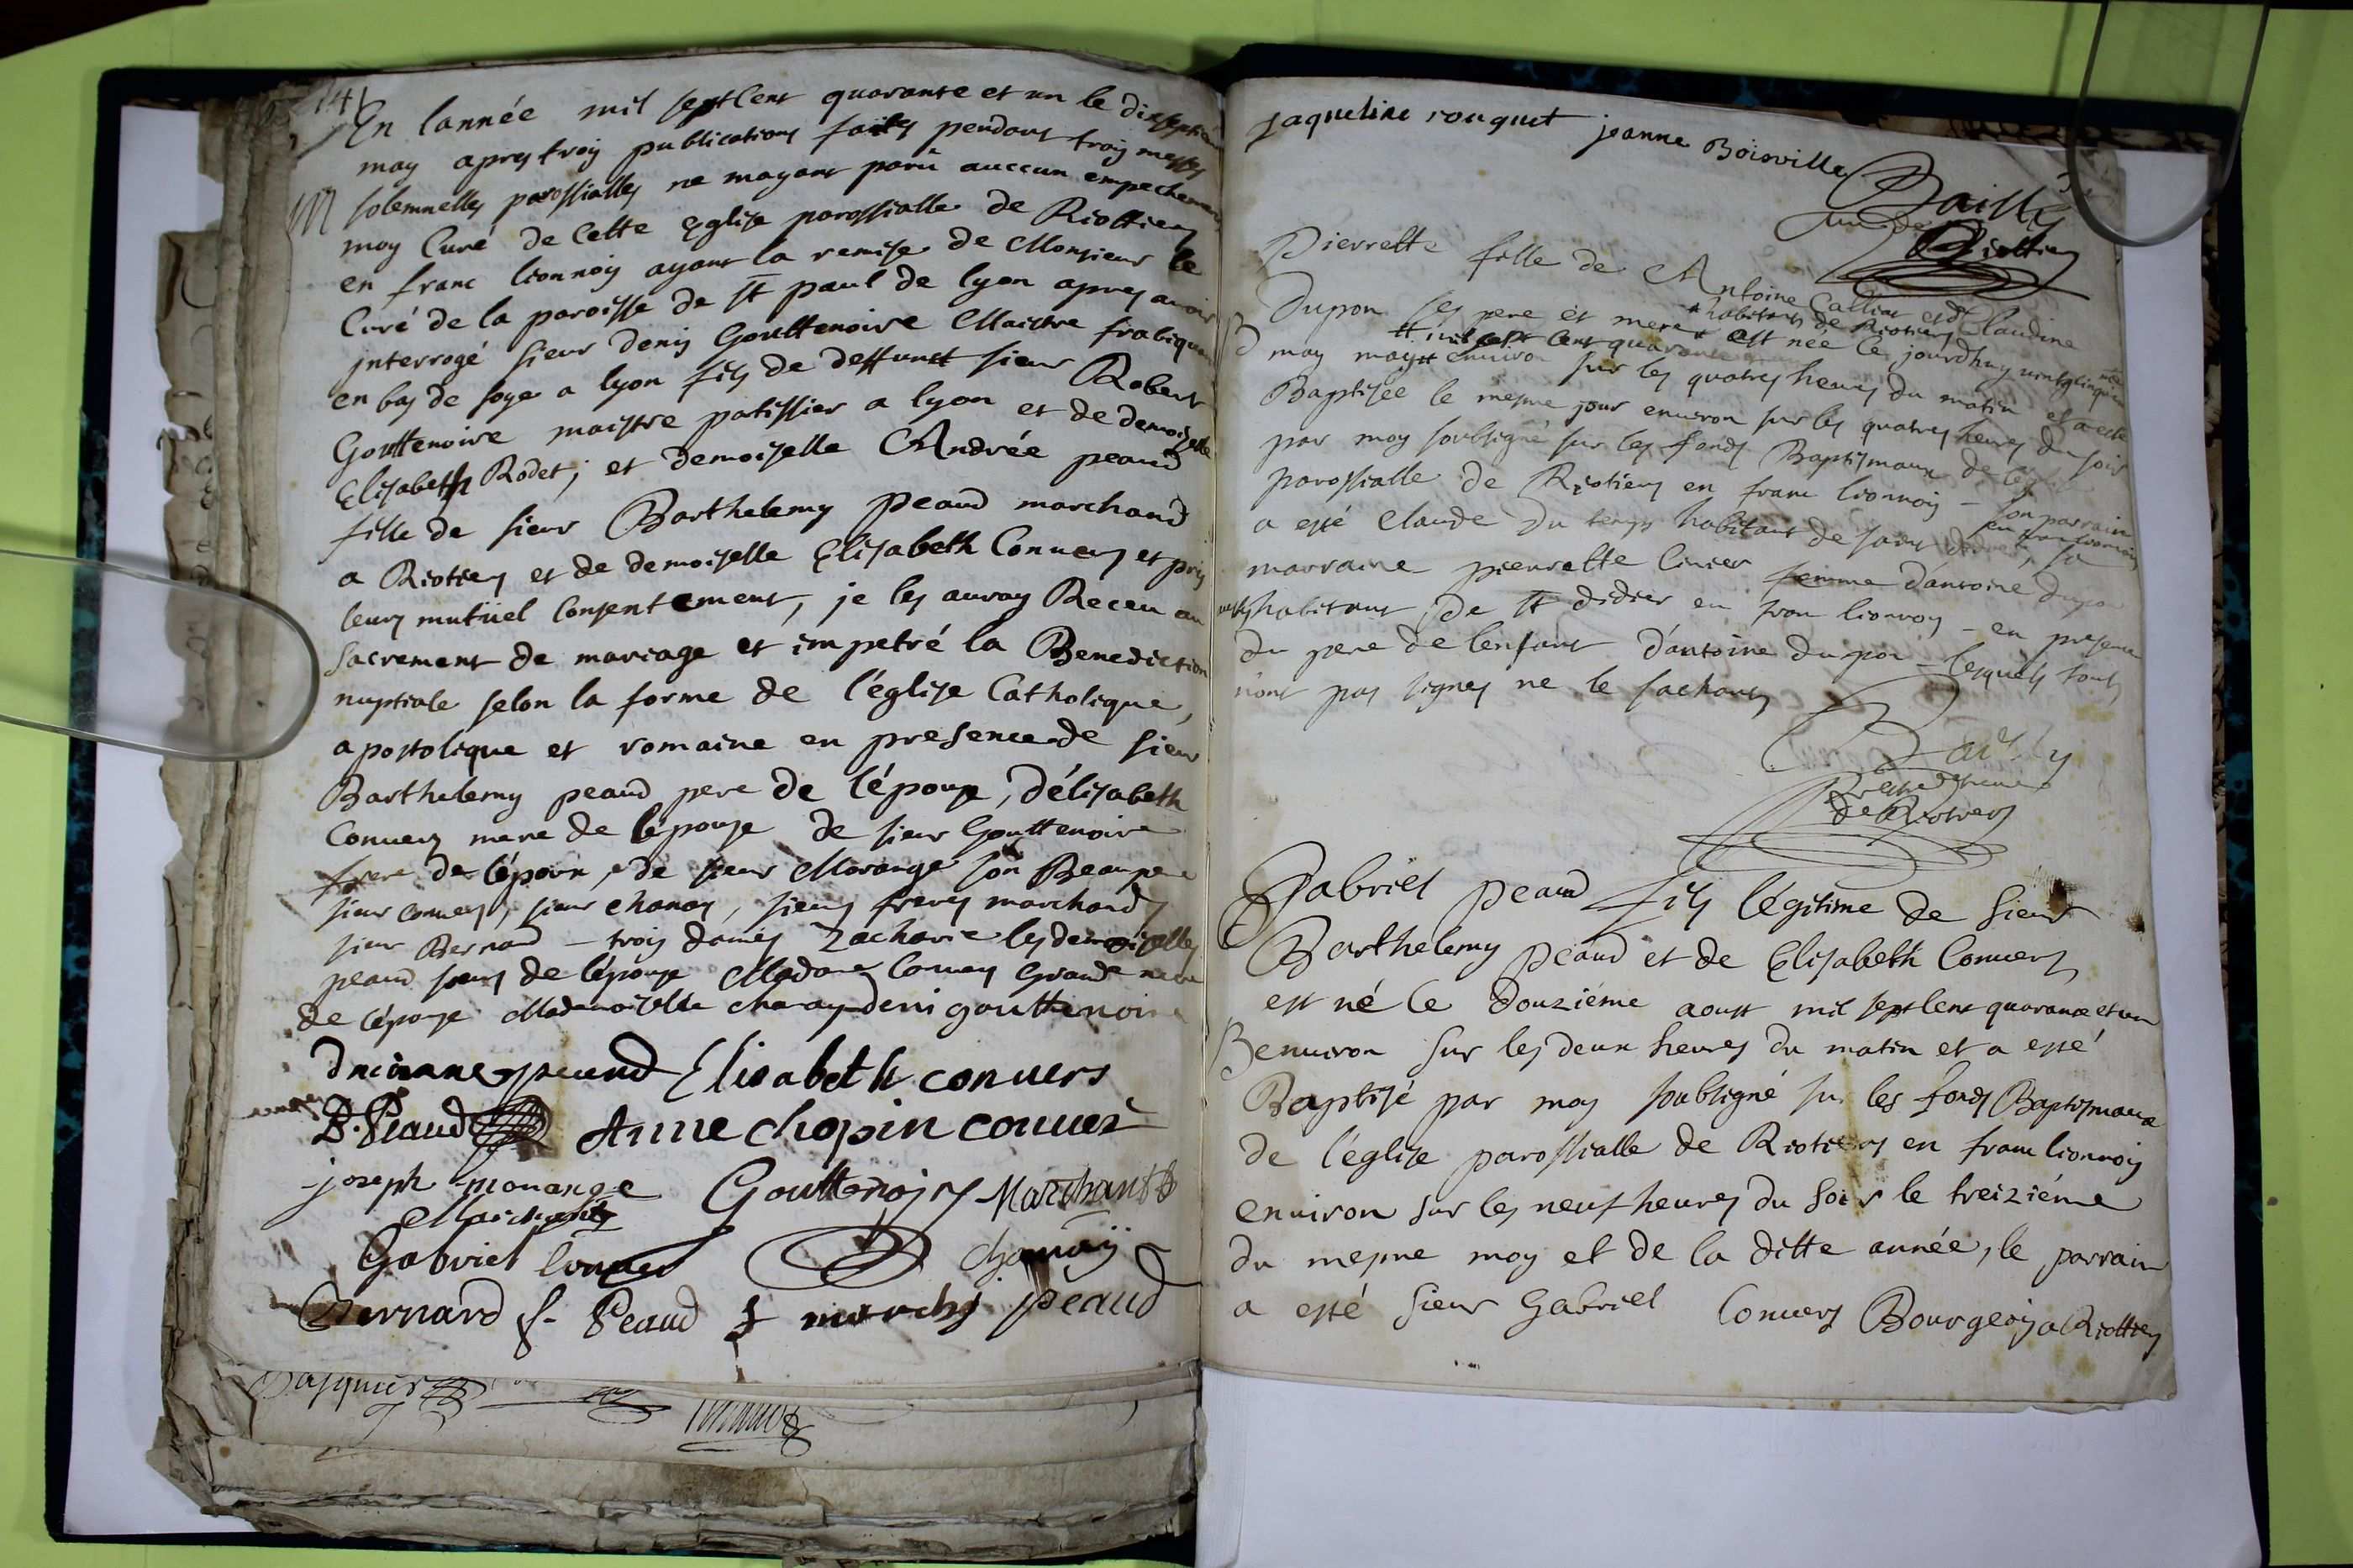 1741
En lannée mil sept Cent quarante et un le dixseptiem
may apres trois publications faites pendant trois messes
M solemnelles parossialles ne mayant parû auccun empechement
moy Curé de Cette Eglise parossialle de Riottiers
en franc lionnois ayant la remise de Monsieur le
Curé de la paroisse de St paul de lyon apres avoir
interrogé sieur denis Gouttenoire Maistre frabiquan
en bas de soye a lyon fils de deffunct sieur Robert
Gouttenoire maistre patissier a lyon et de demoiselle
Elisabeth Rodet; et demoiselle Andrée peaud
fille de sieur Barthelemy peaud marchand
a Riotiers et de demoiselle Elisabeth Convers et pris
leurs mutüel Consentement, je les auray Receu au
Sacrement de mariage et impetré la Benediction
nuptiale selon la forme de l'église Catholique,
apostolique et romaine en presence de sieur
Barthelemy peaud pere de l'épouse, délisabeth
Convers mere de l'épouse de sieur Gouttenoire
frere de l'époux, de sieur Morange son Beaupere
sieur convers, sieur chanay, sieurs freres marchands
sieur Bernard - trois dames Zacharie les demoiselles
peaud sœurs de l'épouse Madame Convers Grande mere
de l'épouse Mademoiselle chanay deni gouttenoire
peaud Elisabeth convers
B. Peaud Anne chopin convers
joseph morange Gouttenoire Marchant
Marchant
Gabriel Convers chanaÿ
Bernard f. Peaud marchs peaud
Pasquier
jaqueline rouquet jeanne Boisville
Bailly
Curé de
Riottiers
Pierrette fille de Antoine Callier et de Claudine
Dupon ses pere et mere habitants de Riotiers est née le jourdhuy vintcinquieme
B may mil sept Cent quarante environ sur les quatres heures du matin et a esté
Baptisée le mesme jour environ sur les quatres heures du soir
par moy soubsigné sur les fonds Baptismaux de l'église
parossialle de Riotiers en franc lionnois - son parrain
a esté Claude Du temps habitant de saint didier en franc lionnois, sa
marraine pierrette femme d'antoine dupon
habitant de St didier en fran lionnois - en presence
du pere de lenfant d'antoine dupon - lesquels touts
n'ont pas signes ne le sachants
Bailly
de Riotiers
Gabriel peaud fils légitime de sieur
Barthelemy peaud et de Elisabeth Convers
est né le douziéme aoust mil sept Cent quarante et un
B environ sur les deux heures du matin et a esté
Baptisé par moy soubsigné sur les fonds Baptismaux
de l'église parossialle de Riotiers en franc lionnois
environ sur les neuf heures du Soir le treiziéme
du mesme moy et de la ditte année, le parrain
a esté sieur Gabriel Convers Bourgeois a Riottiers